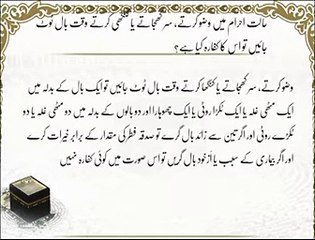 حالت احرام میں وضو کرتے، سر کھجاتے یا کنگھی کرتے وقت بال ٹوٹ
جائیں تو اس کا کفارہ کیا ہے؟
وضو کرتے، سر کھجاتے یا کنگھا کرتے وقت بال ٹوٹ جائیں تو ایک بال کے بدلہ میں
ایک مٹھی غلہ یا ایک ٹکڑا روٹی یا ایک چھوہارا اور دو بالوں کے بدلہ میں دو مٹھی غلہ یا دو
ٹکڑے روٹی اور اگر تین سے زائد بال گرے تو صدقہ فطر کی مقدار کے برابر خیرات کرے
اور اگر بیماری کے سبب یا ازخود بال گریں تو اس صورت میں کوئی کفارہ نہیں